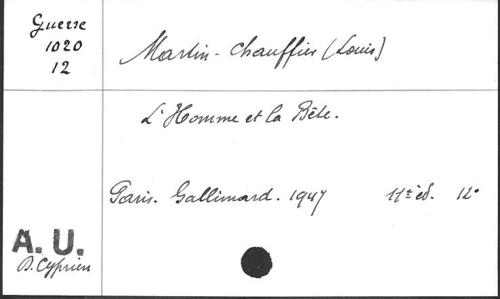 Guerre
1020
12
Martin-Chauffier (Louis)
L'Homme et la Bête.
Paris. Gallimard. 1947 11e éd. 12°
A. U.
D. Cyprien